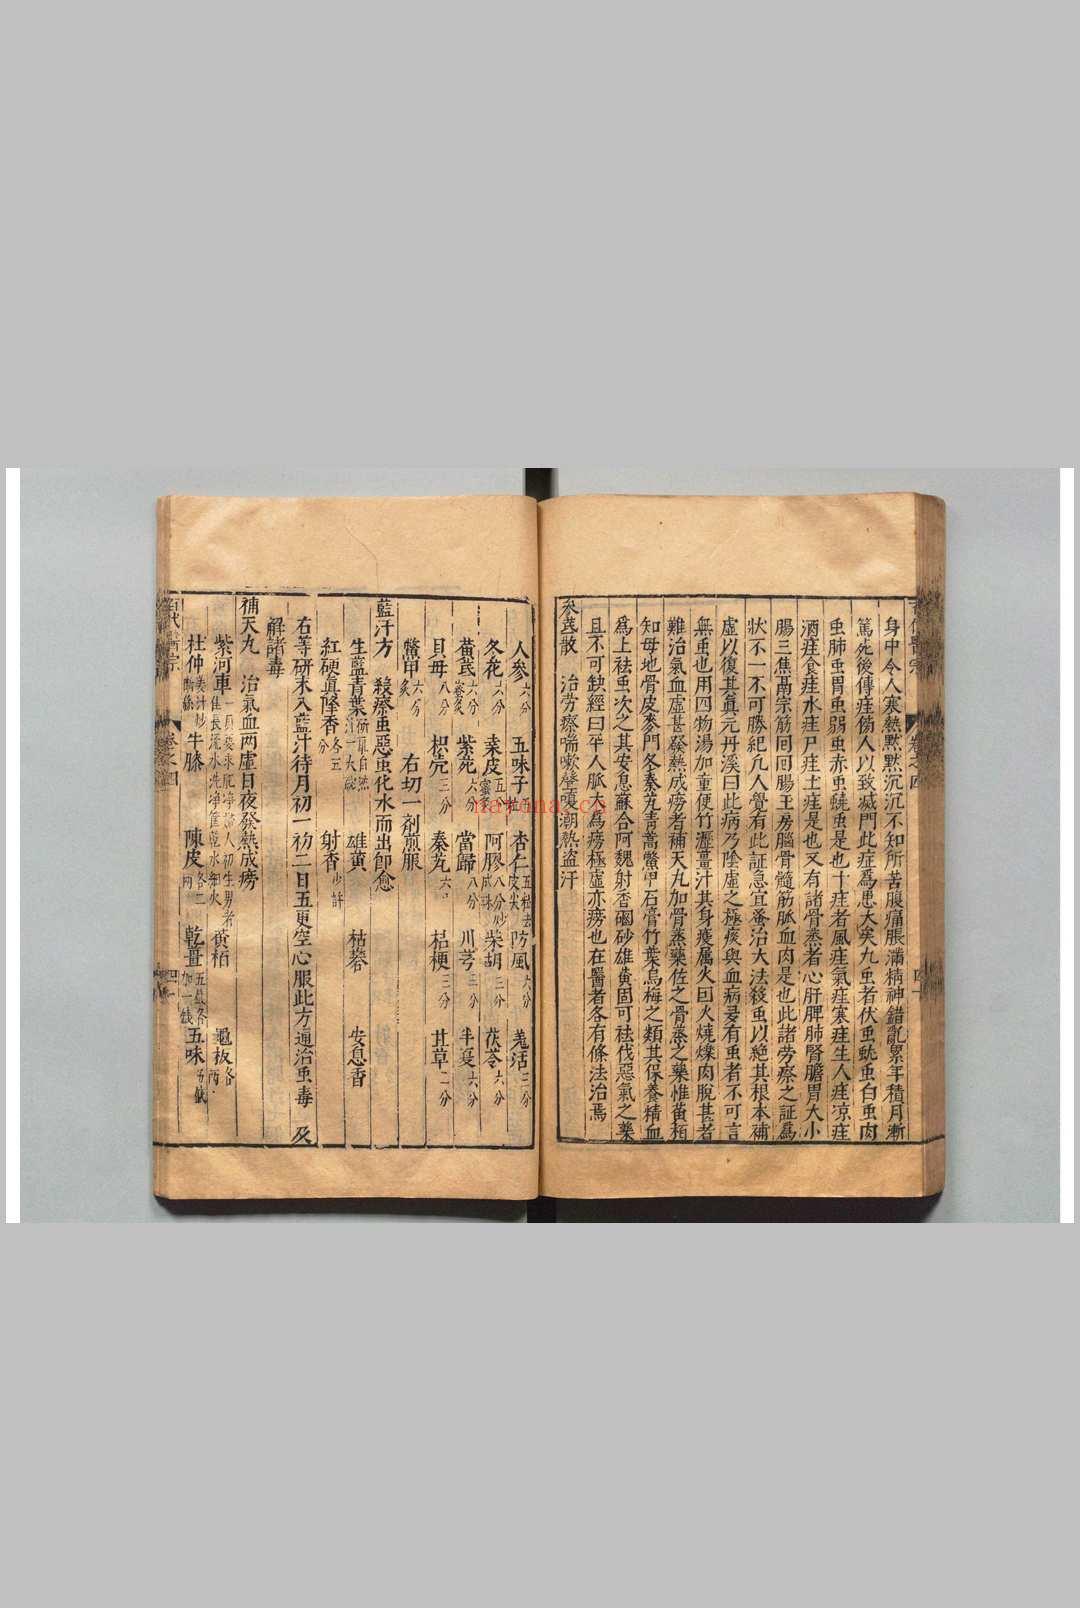 身中令人寒熱默默沉沉不知所苦腹痛脹滿精神錯亂累年積月漸
篤死後傳疰傍人以致滅門此症為患大矣九虫者伏虫蚘虫白虫肉
虫肺虫胃虫弱虫赤虫蟯虫是也十疰者風疰氣疰寒疰生人疰凉疰
酒疰食疰水疰尸疰土疰是也又有諸骨蒸者心肝脾肺腎膽胃大小
腸三焦鬲宗筋回回腸玉房腦骨髓筋脈血肉是也此諸勞瘵之証為
狀不一不可勝紀凡人覺有此証急宜蚤治大法殺虫以絶其根本補
虛以復其真元丹溪曰此病乃陰虛之極痰與血病㝷有虫者不可言
無虫也用四物湯加童便竹瀝薑汁其身瘦属火曰火燒爍肉脫甚者
難治氣血虛甚發熱成癆者補天丸加骨蒸藥佐之骨蒸之藥惟黃栢
知母地骨皮麥門冬秦艽青蒿鱉甲石膏竹葉烏梅之類其保養精血
為上祛虫次之其安息蘇合阿魏射香硇砂雄黃固可祛伐惡氣之藥
且不可缺經曰平人脈大為癆極虛亦癆也在醫者各有條法治焉
參芪散 治劳瘵喘嗽聲嗄潮熱盜汗
人參六分 五味子 杏仁五粒去皮尖 防風六分 羗活三分
冬花六分 桑皮五分蜜炙 阿膠八分炒成珠 柴胡三分 茯苓六分
黃芪六分蜜炙 紫苑六分 當歸八分 川芎三分 半夏六分
貝母八分 枳壳三分 秦艽六分 桔梗三分 甘草二分
鱉甲炙六分 右切一剤煎服
藍汁方 殺瘵虫惡虫化水而出卽愈
生藍青葉 雄黃 枯礬 安息香
紅硬眞降香各五分 射香少許
右等研末入藍汁待月初一初二日五更空心服此方通治虫毒 及
解諸毒
補天丸 治氣血两虛日夜發熱成癆
紫河車 黃栢 龜板各 两
杜仲姜汁炒断絲 牛膝 陳皮各二两 乾薑五錢冬加一錢 五味
百代醫宗
卷之四
四一
nayona.cn